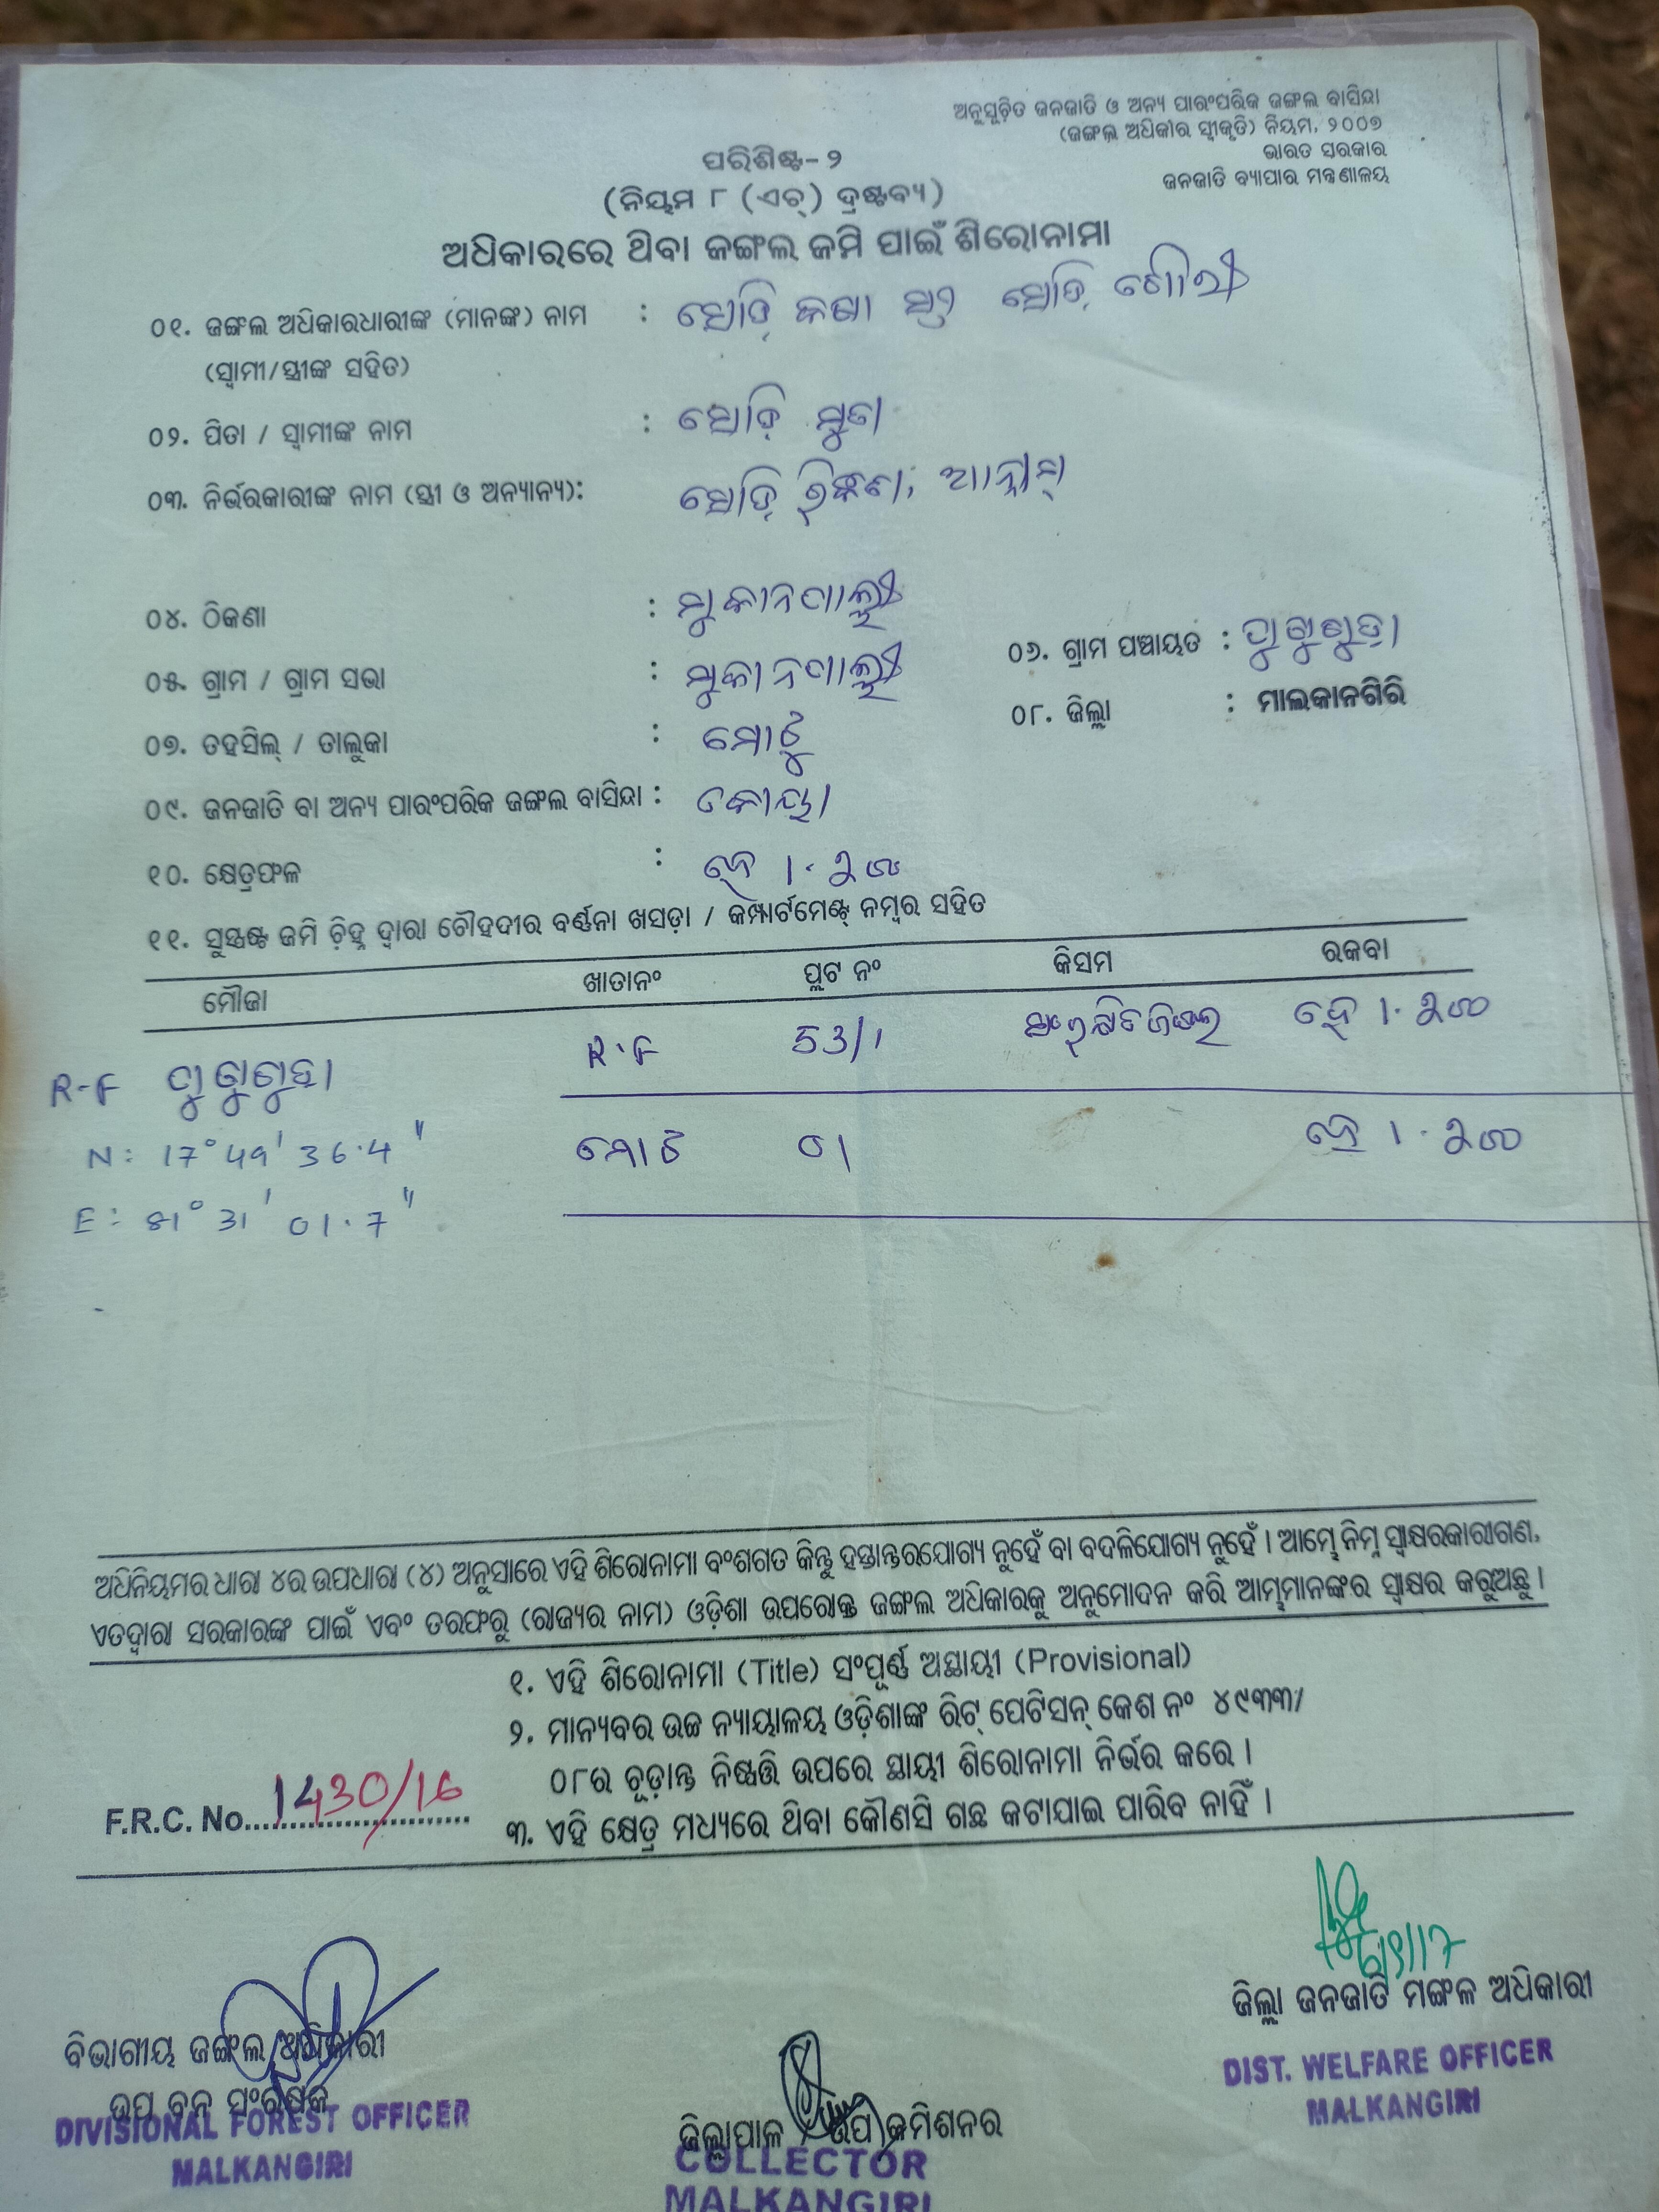 ଅନୁସୂଚିତ ଜନଜାତି ଓ ଅନ୍ୟ ପାରଂପରିକ ଜଙ୍ଗଲ ବାସିନ୍ଦା
(ଜଙ୍ଗଲ ଅଧିକାର ସ୍ୱୀକୃତି) ନିୟମ, ୨୦୦୭
ଭାରତ ସରକାର
ଜନଜାତି ବ୍ୟାପାର ମନ୍ତ୍ରଣାଳୟ
ପରିଶିଷ୍ଟ-୨
(ନିୟମ ୮ (ଏଚ୍) ଦ୍ରଷ୍ଟବ୍ୟ)
ଅଧିକାରରେ ଥିବା ଜଙ୍ଗଲ ଜମି ପାଇଁ ଶିରୋନାମା
୦୧. ଜଙ୍ଗଲ ଅଧିକାରଧାରୀଙ୍କ (ମାନଙ୍କ) ନାମ :
(ସ୍ୱାମୀ/ସ୍ତ୍ରୀଙ୍କ ସହିତ)
୦୨. ପିତା / ସ୍ୱାମୀଙ୍କ ନାମ :
୦୩. ନିର୍ଭରକାରୀଙ୍କ ନାମ (ସ୍ତ୍ରୀ ଓ ଅନ୍ୟାନ୍ୟ):
୦୪. ଠିକଣା :
୦୫. ଗ୍ରାମ / ଗ୍ରାମ ସଭା :
୦୬. ଗ୍ରାମ ପଞ୍ଚାୟତ :
୦୭. ତହସିଲ୍ / ତାଲୁକା : ମୋଟୁ
୦୮. ଜିଲ୍ଲା : ମାଲକାନଗିରି
୦୯. ଜନଜାତି ବା ଅନ୍ୟ ପାରଂପରିକ ଜଙ୍ଗଲ ବାସିନ୍ଦା : କୋୟା
୧୦. କ୍ଷେତ୍ରଫଳ : ହେ ୧.୨୦୦
୧୧. ସୁସ୍ପଷ୍ଟ ଜମି ଚିହ୍ନ ଦ୍ୱାରା ଚୌହଦୀର ବର୍ଣ୍ଣନା ଖସଡ଼ା / କମ୍ପାର୍ଟମେଣ୍ଟ୍ ନମ୍ବର ସହିତ
ମୌଜା ଖାତାନଂ ପ୍ଲଟ ନଂ କିସମ ରକବା
R-F R.F 53/1 ହେ ୧.୨୦୦
N: 17° 49' 36.4" ମୋଟ ୦୧ ହେ ୧.୨୦୦
E: 81° 31' 01.7"
ଅଧିନିୟମର ଧାରା ୪ର ଉପଧାରା (୪) ଅନୁସାରେ ଏହି ଶିରୋନାମା ବଂଶଗତ କିନ୍ତୁ ହସ୍ତାନ୍ତରଯୋଗ୍ୟ ନୁହେଁ ବା ବଦଳିଯୋଗ୍ୟ ନୁହେଁ । ଆମ୍ଭେ ନିମ୍ନ ସ୍ୱାକ୍ଷରକାରୀଗଣ,
ଏତଦ୍ୱାରା ସରକାରଙ୍କ ପାଇଁ ଏବଂ ତରଫରୁ (ରାଜ୍ୟର ନାମ) ଓଡ଼ିଶା ଉପରୋକ୍ତ ଜଙ୍ଗଲ ଅଧିକାରକୁ ଅନୁମୋଦନ କରି ଆମ୍ଭମାନଙ୍କର ସ୍ୱାକ୍ଷର କରୁଅଛୁ ।
୧. ଏହି ଶିରୋନାମା (Title) ସଂପୂର୍ଣ୍ଣ ଅସ୍ଥାୟୀ (Provisional)
୨. ମାନ୍ୟବର ଉଚ୍ଚ ନ୍ୟାୟାଳୟ ଓଡ଼ିଶାଙ୍କ ରିଟ୍ ପେଟିସନ୍ କେଶ ନଂ ୪୯୩୩/
୦୮ର ଚୂଡ଼ାନ୍ତ ନିଷ୍ପତ୍ତି ଉପରେ ସ୍ଥାୟୀ ଶିରୋନାମା ନିର୍ଭର କରେ ।
୩. ଏହି କ୍ଷେତ୍ର ମଧ୍ୟରେ ଥିବା କୌଣସି ଗଛ କଟାଯାଇ ପାରିବ ନାହିଁ ।
F.R.C. No. 1430/16
ବିଭାଗୀୟ ଜଙ୍ଗଲ ଅଧିକାରୀ
ଉପ ବନ ସଂରକ୍ଷକ
DIVISIONAL FOREST OFFICER
MALKANGIRI
ଜିଲ୍ଲାପାଳ / ଉପ କମିଶନର
COLLECTOR
MALKANGIRI
ଜିଲ୍ଲା ଜନଜାତି ମଙ୍ଗଳ ଅଧିକାରୀ
DIST. WELFARE OFFICER
MALKANGIRI